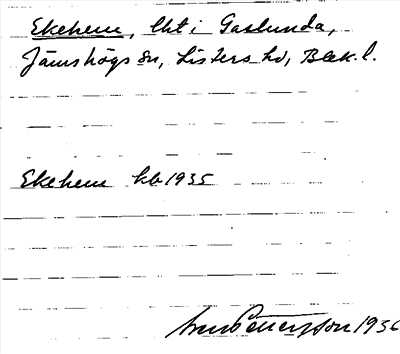 Ekehem, lht i Gaslunda,
Jämshögs sn, Listers hd, Blek. l.
Ekehem kb 1935
1936